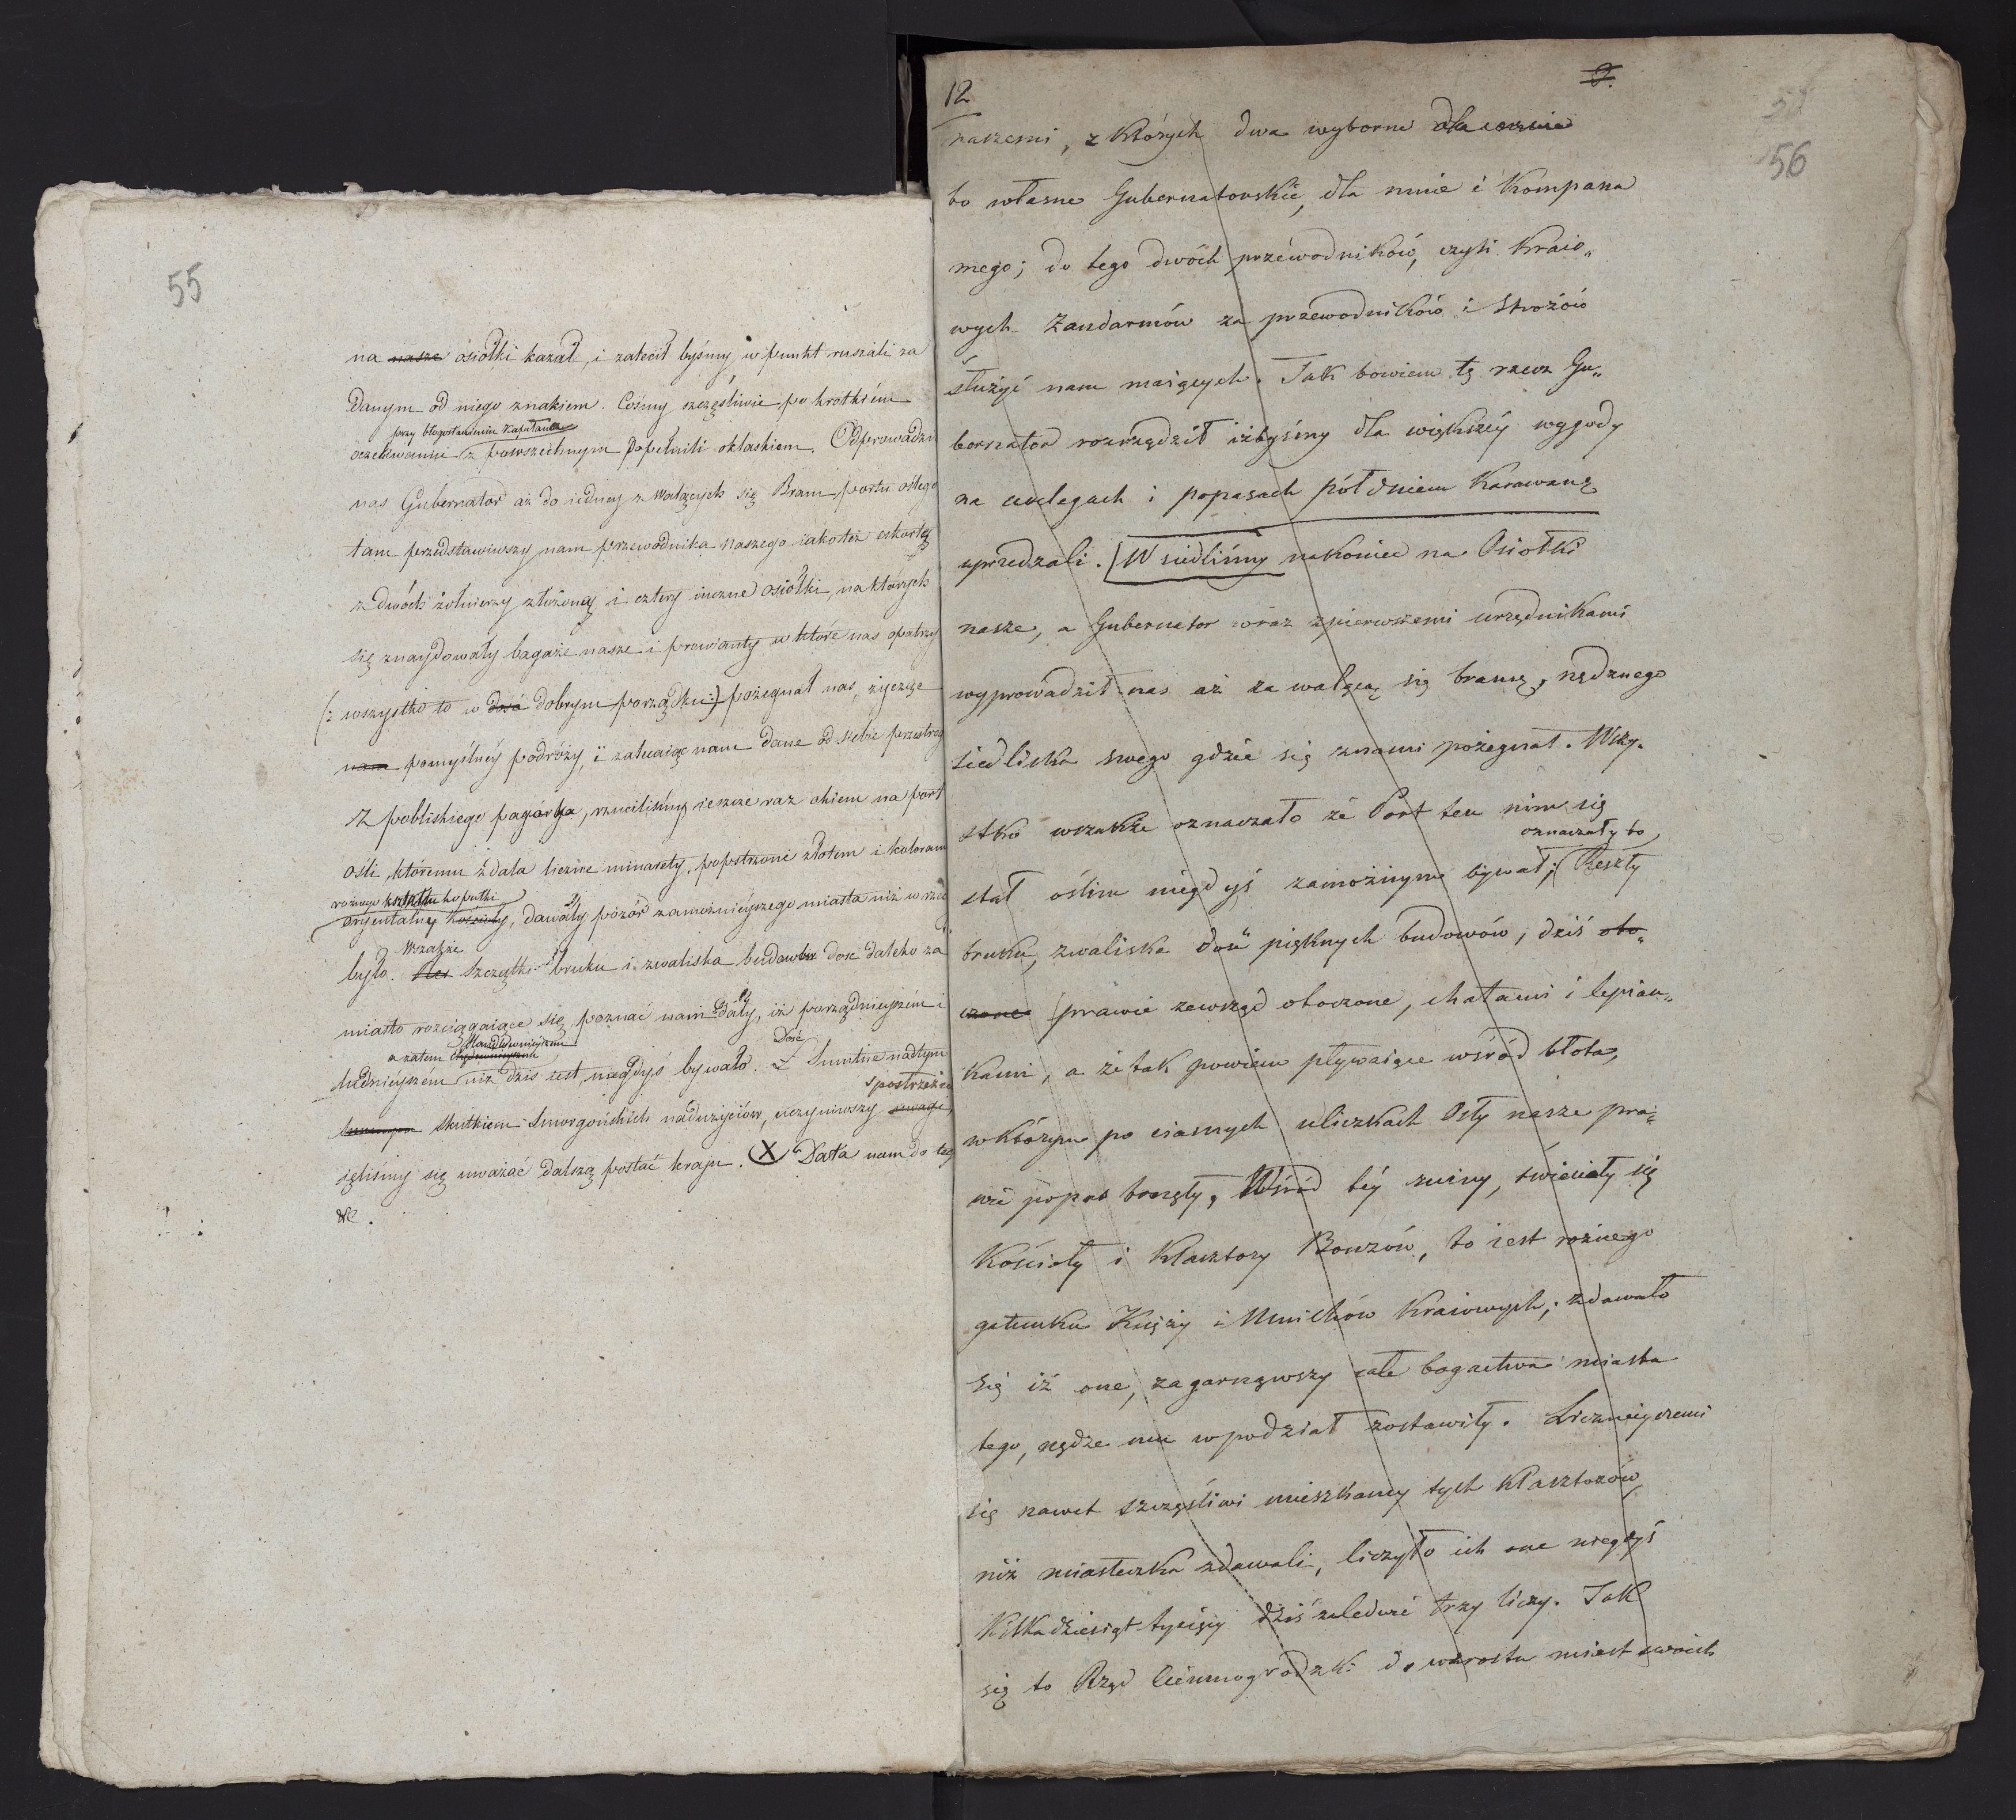 55
na nasze osiołki kazał, i zalecił byśmy w punkt ruszali za
danym od niego znakiem. Cośmy szczęśliwie po krótkiém
przy błogosławieniu Kapłanów
oczekiwaniu z powszechnym popełnili oklaskiem. Odprowadził
nas Gubernator aż do iedney z walących się Bram portu oślego
tam przedstawiwszy nam przewodnika naszego iakoteż eskortę
z dwóch żołnierzy złożoną i cztery iuczne osiołki, na których
się znaydowały bagaże nasze i prowianty w które nas opatrzy
(: wszystko to w dość dobrym porządku :) pożegnał nas, życząc
nam pomyślnéy podróży, i zalecaiąc nam dane od siebie przestrog
Z pobliskiego pagórka, rzuciliśmy ieszcze raz okiem na port
ośli, któremu zdala liczne minarety, popstrzone złotem i kolorami
rożnego kształtu kopułki
oryentalney kościoły, dawały pozór zamożnieyszego miasta niż w rzec
Wszakże
było. szczątki bruku i zwaliska budowów dość daleko za
miasto rozciągaiące się, poznać nam dały, iż porządnieyszém i
a zatem
ludnieyszém niż dziś iest, niegdyś bywało. Dość smutne nad tym
spostrzeżen
skutkiem Smorgońskich nadużyciów, uczyniwszy uwagi,
ięliśmy się uważać dalszą postać kraju. X Dała nam do teg
&c.
12
2.
56
naszemi, z których dwa wyborne
to własne Gubernatorskie, dla mnie i kompana
mego; do tego dwóch przéwodników, czyli kraio„
wych Zandarmów za przéwodników i stróżów
służyć nam maiących. Tak bowiem tę rzecz Gu„
bernator rozrządził iżbyśmy dla większéy wygody
na noclegach i popasach pół dniem Karawanę
uprzedzali. Wsiedliśmy nakoniec na Osiołki
nasze, a Gubernator wraz z pierwszemi urzędnikami
wyprowadził nas aż za walącą się bramę, nędznego
siedliska swego gdzie się z nami pożegnał. Wszy„
stko wszakże oznaczało że Port ten nim się
oznaczały to
stał oślim niegdyś zamożnym bywał; Reszty
bruku, zwaliska dość pięknych budowów, dziś oto„
czone prawie zewsząd otoczone, chatami i lepian„
kami, a że tak powiem pływaiące wśród błota,
w którym po ciasnych uliczkach Osły nasze pra„
wie popas brnęły. Wśród téy ruiny, świeciały się
Kościoły i Klasztory Bonzów, to iest rożnego
gatunku Księży i Mnichów kraiowych; zdawało
się iż one, zagarnąwszy całe bogactwa miasta
tego, nędze mu w podział zostawiły. Licznieyszemi
się nawet szczęśliwi mieszkancy tych Klasztorów,
niż miasteczka zdawali, liczyło ich one niegdyś
kilkadziesiąt tysięcy dziś zaledwie trzy liczy. Tak
się to Rząd Ciemnogrodzki do wzrostu miast swoich